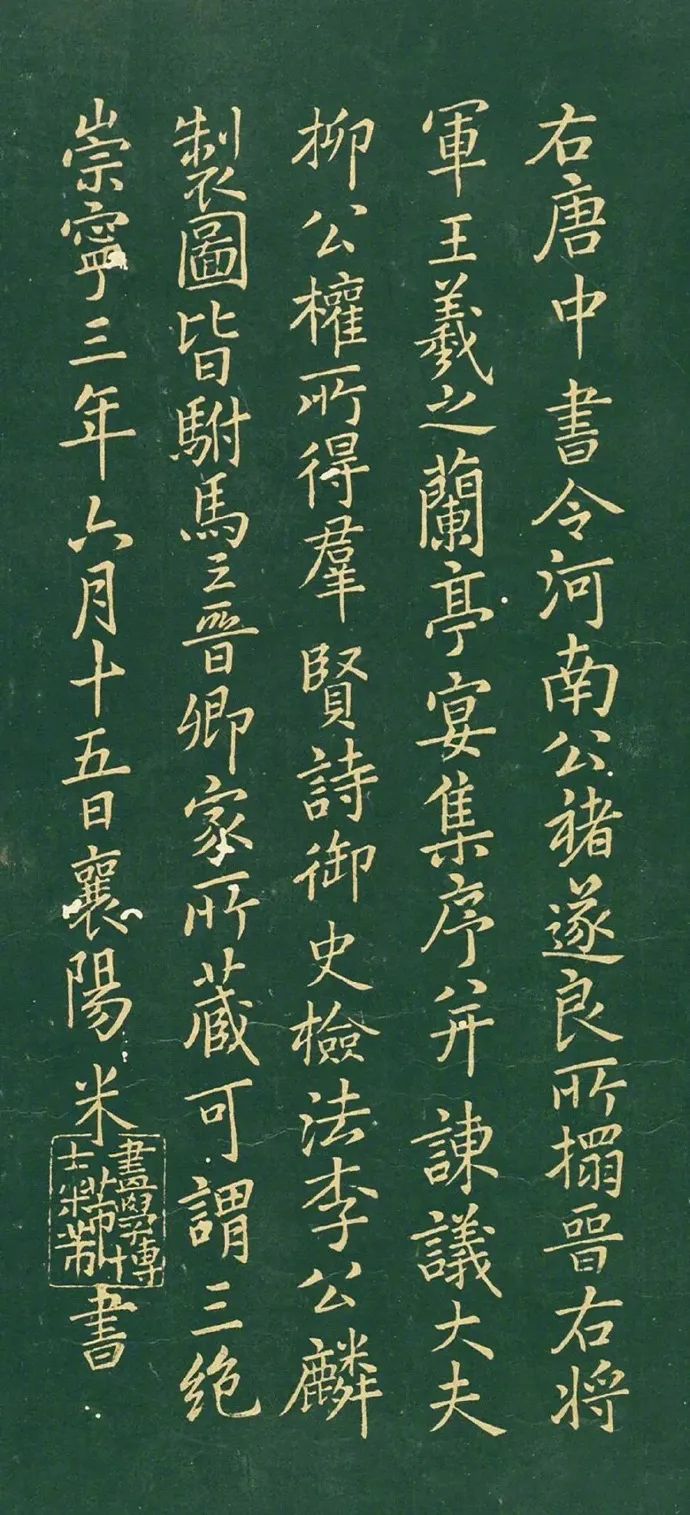 右唐中書令河南公褚遂良所搨晉右将
軍王羲之蘭亭宴集序并諌議大夫
柳公權所得羣賢詩御史檢法李公麟
製圖皆駙馬王晉卿家所蔵可謂三絶
崇寧三年六月十五日襄陽米芾書